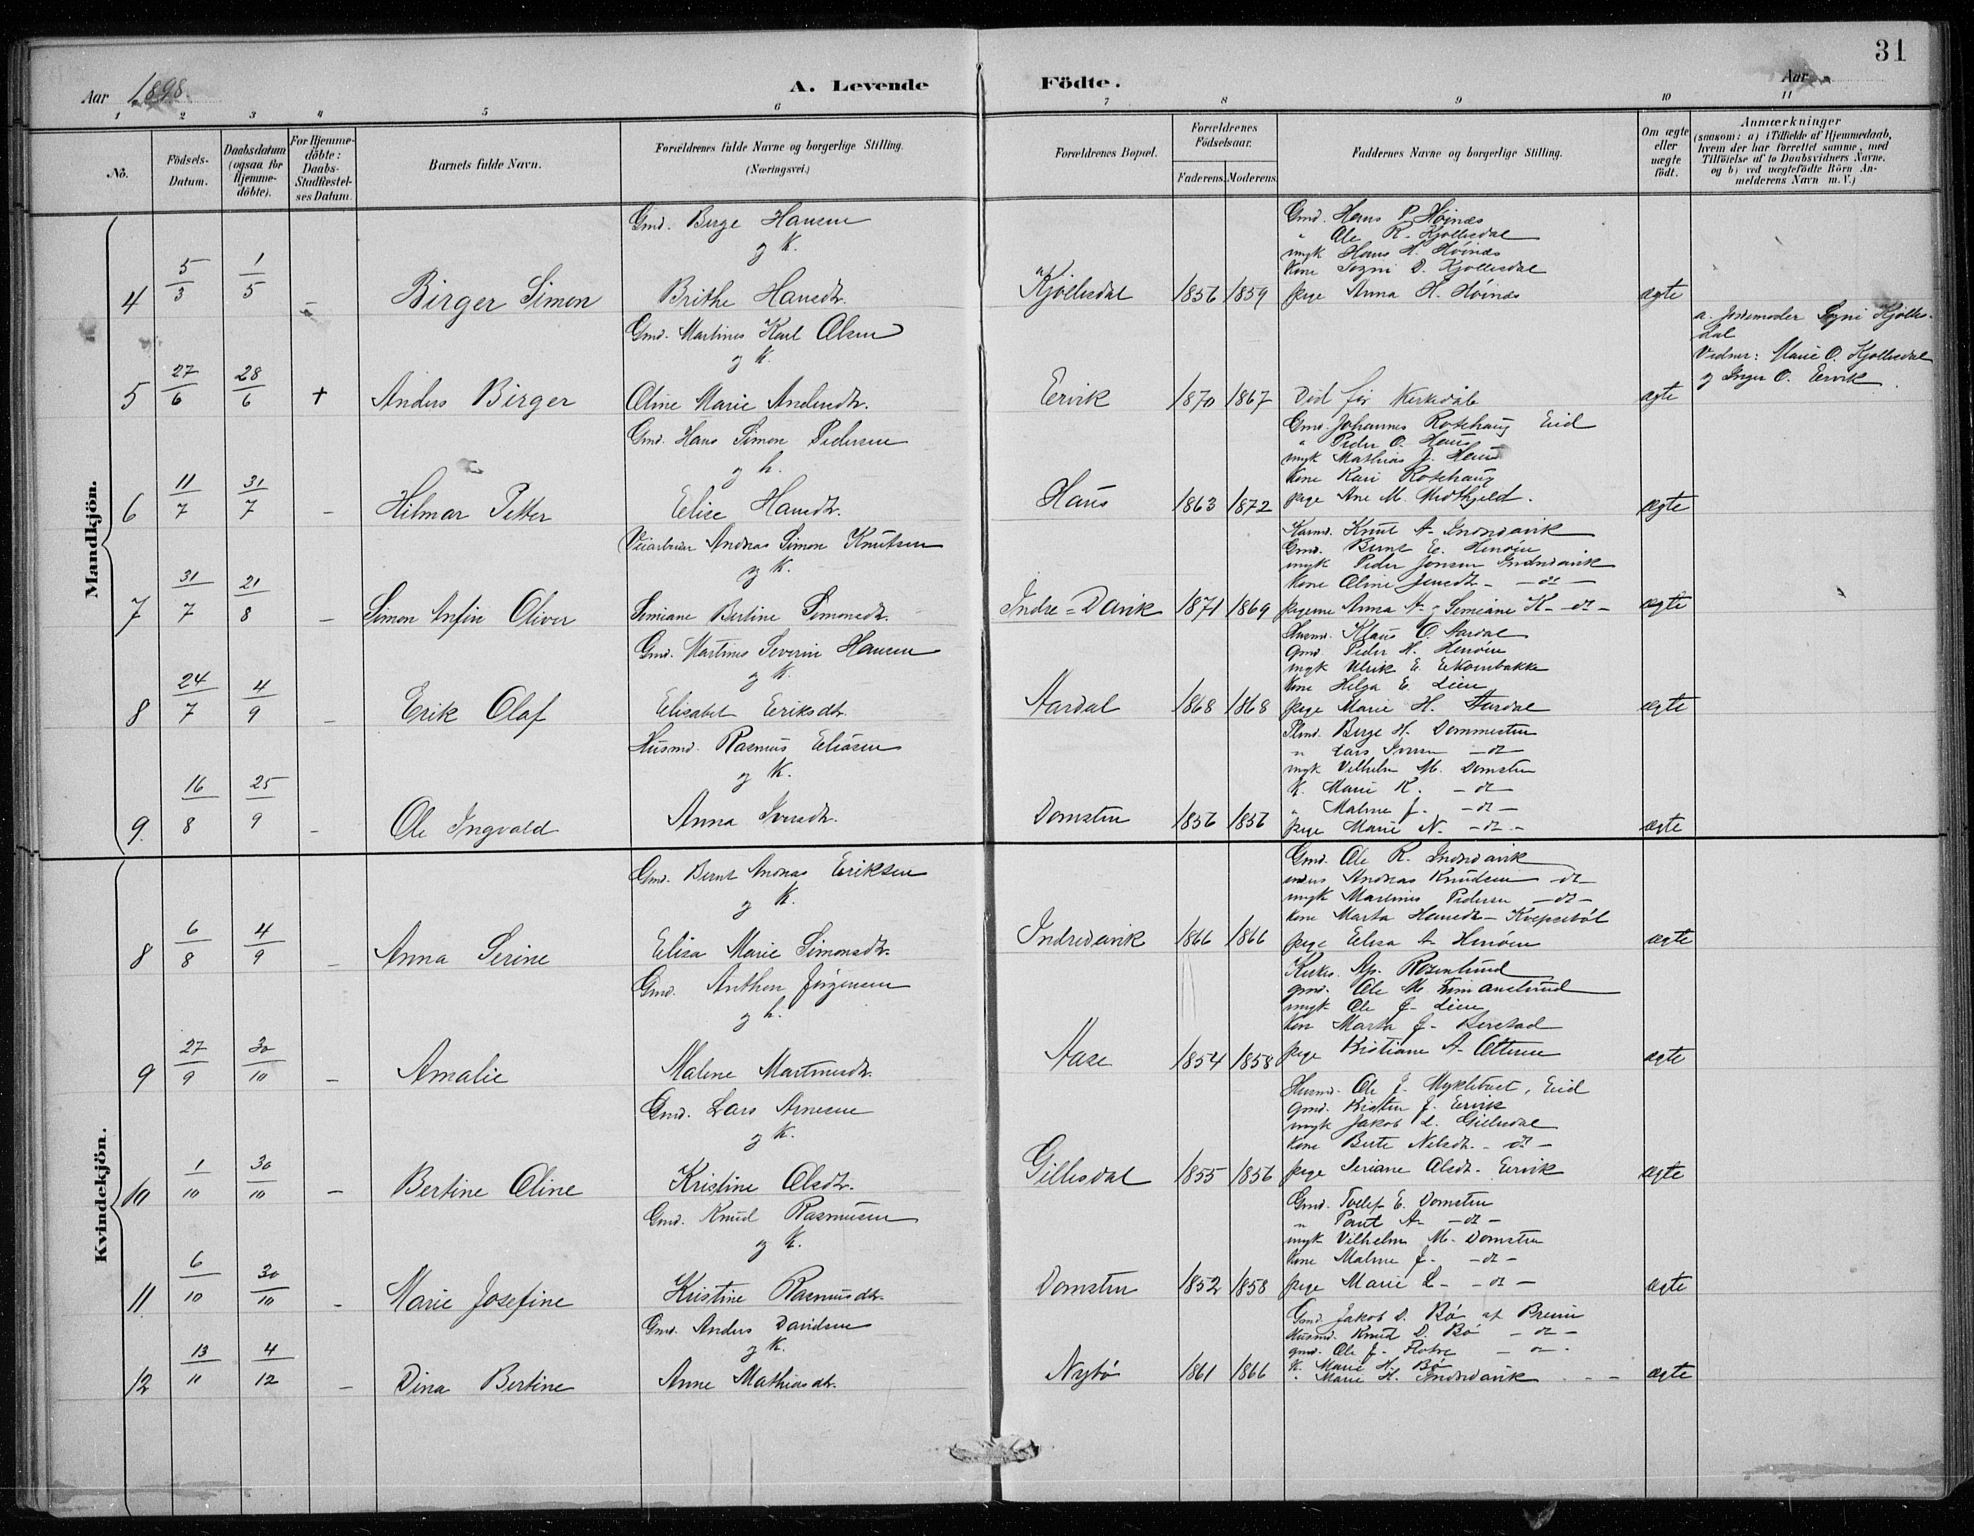 31
Aar 1898.
A. Levende
Födte.
Aar
1
2
3
4
5
6
7
8
9
10
11
No.
Födsels-Datum.
Daabsdatum (ogsaa for Hjemme-döbte).
For Hjemme-döbte: Daabs-Stadfæstel-ses Datum.
Barnets fulde Navn.
Forældrenes fulde Navne og borgerlige Stilling.
(Næringsvei.)
Forældrenes Bopæl.
Forældrenes Födselsaar.
Faderens.
Moderens.
Faddernes Navne og borgerlige Stilling.
Om ægte eller uægte födt.
Anmærkninger
(saasom: a) i Tilfælde af Hjemmedaab,
hvem der har forrettet samme, med
Tilföielse af to Daabsvidners Navne,
og b) ved uægtefödte Börn An-
melderens Navn m. V.)
Mandkjön.
Gmd. Berge Hansen
og k.
4 5/3 1/5 – Birger Simon Brithe Hansdtr. Kjøllesdal 1856 1859
Gmd. Hans P. Høinæs
" Ole R. Kjøllesdal
myk Hans H. Høinæs
kone Sogni O. Kjøllesdal
pige Anna H. Høinæs ægte
Gmd. Martines Karl Olsen
og k.
5 27/6 28/6 + Anders Birger Oline Marie Andersdtr. Eervik 1870 1867 Død før Kirkedåb ægte
a. Jordemoder Sogni Kjølles-
dal
Vidner: Marie O. Kjøllesdal
og Inger O. Eervik.
Gmd. Hans Simon Pedersen
og k.
6 11/7 31/7 – Hilmar Petter Elise Hansdtr. Haus 1863 1872
Gmd. Johannes Rotehaug Eid
" Peder O. Haus
myk Mathias J. Haus
kone Kari Rotehaug
pige Ane M. Midthjeld. ægte
Veiarbeider Andreas Simon Knutsen
og k.
7 31/7 21/8 – Simon Anfin Oliver Simiane Bertine Simonsdtr. Indre-Davik 1871 1869
Kaarmd. Knut A. Indredavik
Gmd. Bernt E. Henøen
myk Peder Jonsen Indredavik
kone Oline Jensdtr. – do –
pigerne Anna A. og Simiane K. – do – ægte
Gmd. Martines Severin Hansen
og k.
8 24/7 4/9 – Erik Olaf Elisabet Eriksdtr. Aardal 1868 1868
Husmd. Klaus O. Aardal
Gmd. Peder H. Henøen
myk Ulrik E. Ekornbakke
kone Helga E. Lien
pige Marie H. Aardal ægte
Husmd. Rasmus Eliasen
og k.
9. 16/8 25/9 – Ole Ingvald Anna Iversdtr. Domsten 1856 1856
Plmd. Berge H. Dommesten
" Lars Iversen – do –
myk Vilhelm M. Domsten
k. Marie K. – do –
" Malene J. – do –
pige Marie N. – do – ægte
Kvindekjön.
Gmd. Bernt Andreas Eriksen
og k.
8 6/8 4/9 – Anna Serine Elisa Marie Simonsdtr. Indredavik 1866 1866
Gmd. Ole R. Indredavik
Andreas Knudsen – do –
myk Martines Pedersen – do –
kone Marta Hansdtr. Kvepsebøl
pige Elisa A. Henøen ægte
Gmd. Anthon Jørgensen
og k.
9 27/9 30/10 – Amalie Malene Martinusdtr. Aase 1854 1858
Kirkes. Ap. Rosenlund
gmd. Ole M.
myk Ole J. Lien
kone Marta J. Berstad
pige Kristiane A. Otteren ægte
Gmd. Lars Arnesen
og k.
10 1/10 30/10 – Bertine Oline Kristine Olsdtr. Gillesdal 1855 1856
Husmd. Ole J. Myklebust, Eid
gmd. Kristen J. Eervik
myk Jakob L. Gillesdal
kone Berte Nelsdtr. – do –
pige Seriane Olsdtr. Eervik ægte
Gmd. Knud Rasmusen
og k.
11 6/10 30/10 – Marie Josefine Kristine Rasmusdtr. Domsten 1852 1858
Gmd. Tollef E. Domsten
" Paul A. – do –
myk Vilhelm M. Domsten
kone Malene J. – do –
pige Marie L. – do – ægte
Gmd. Anders Davidsen
og k.
12 13/11 4/12 – Dina Bertine Anne Mathiasdtr. Nybø 1861 1866
Gmd. Jakob D. Bø af Breim
Husmd. Knud D. Bø – do –
gmd. Ole J. Flotre – do –
k. Marie H. Bø
" Marie H. Indredavik ægte